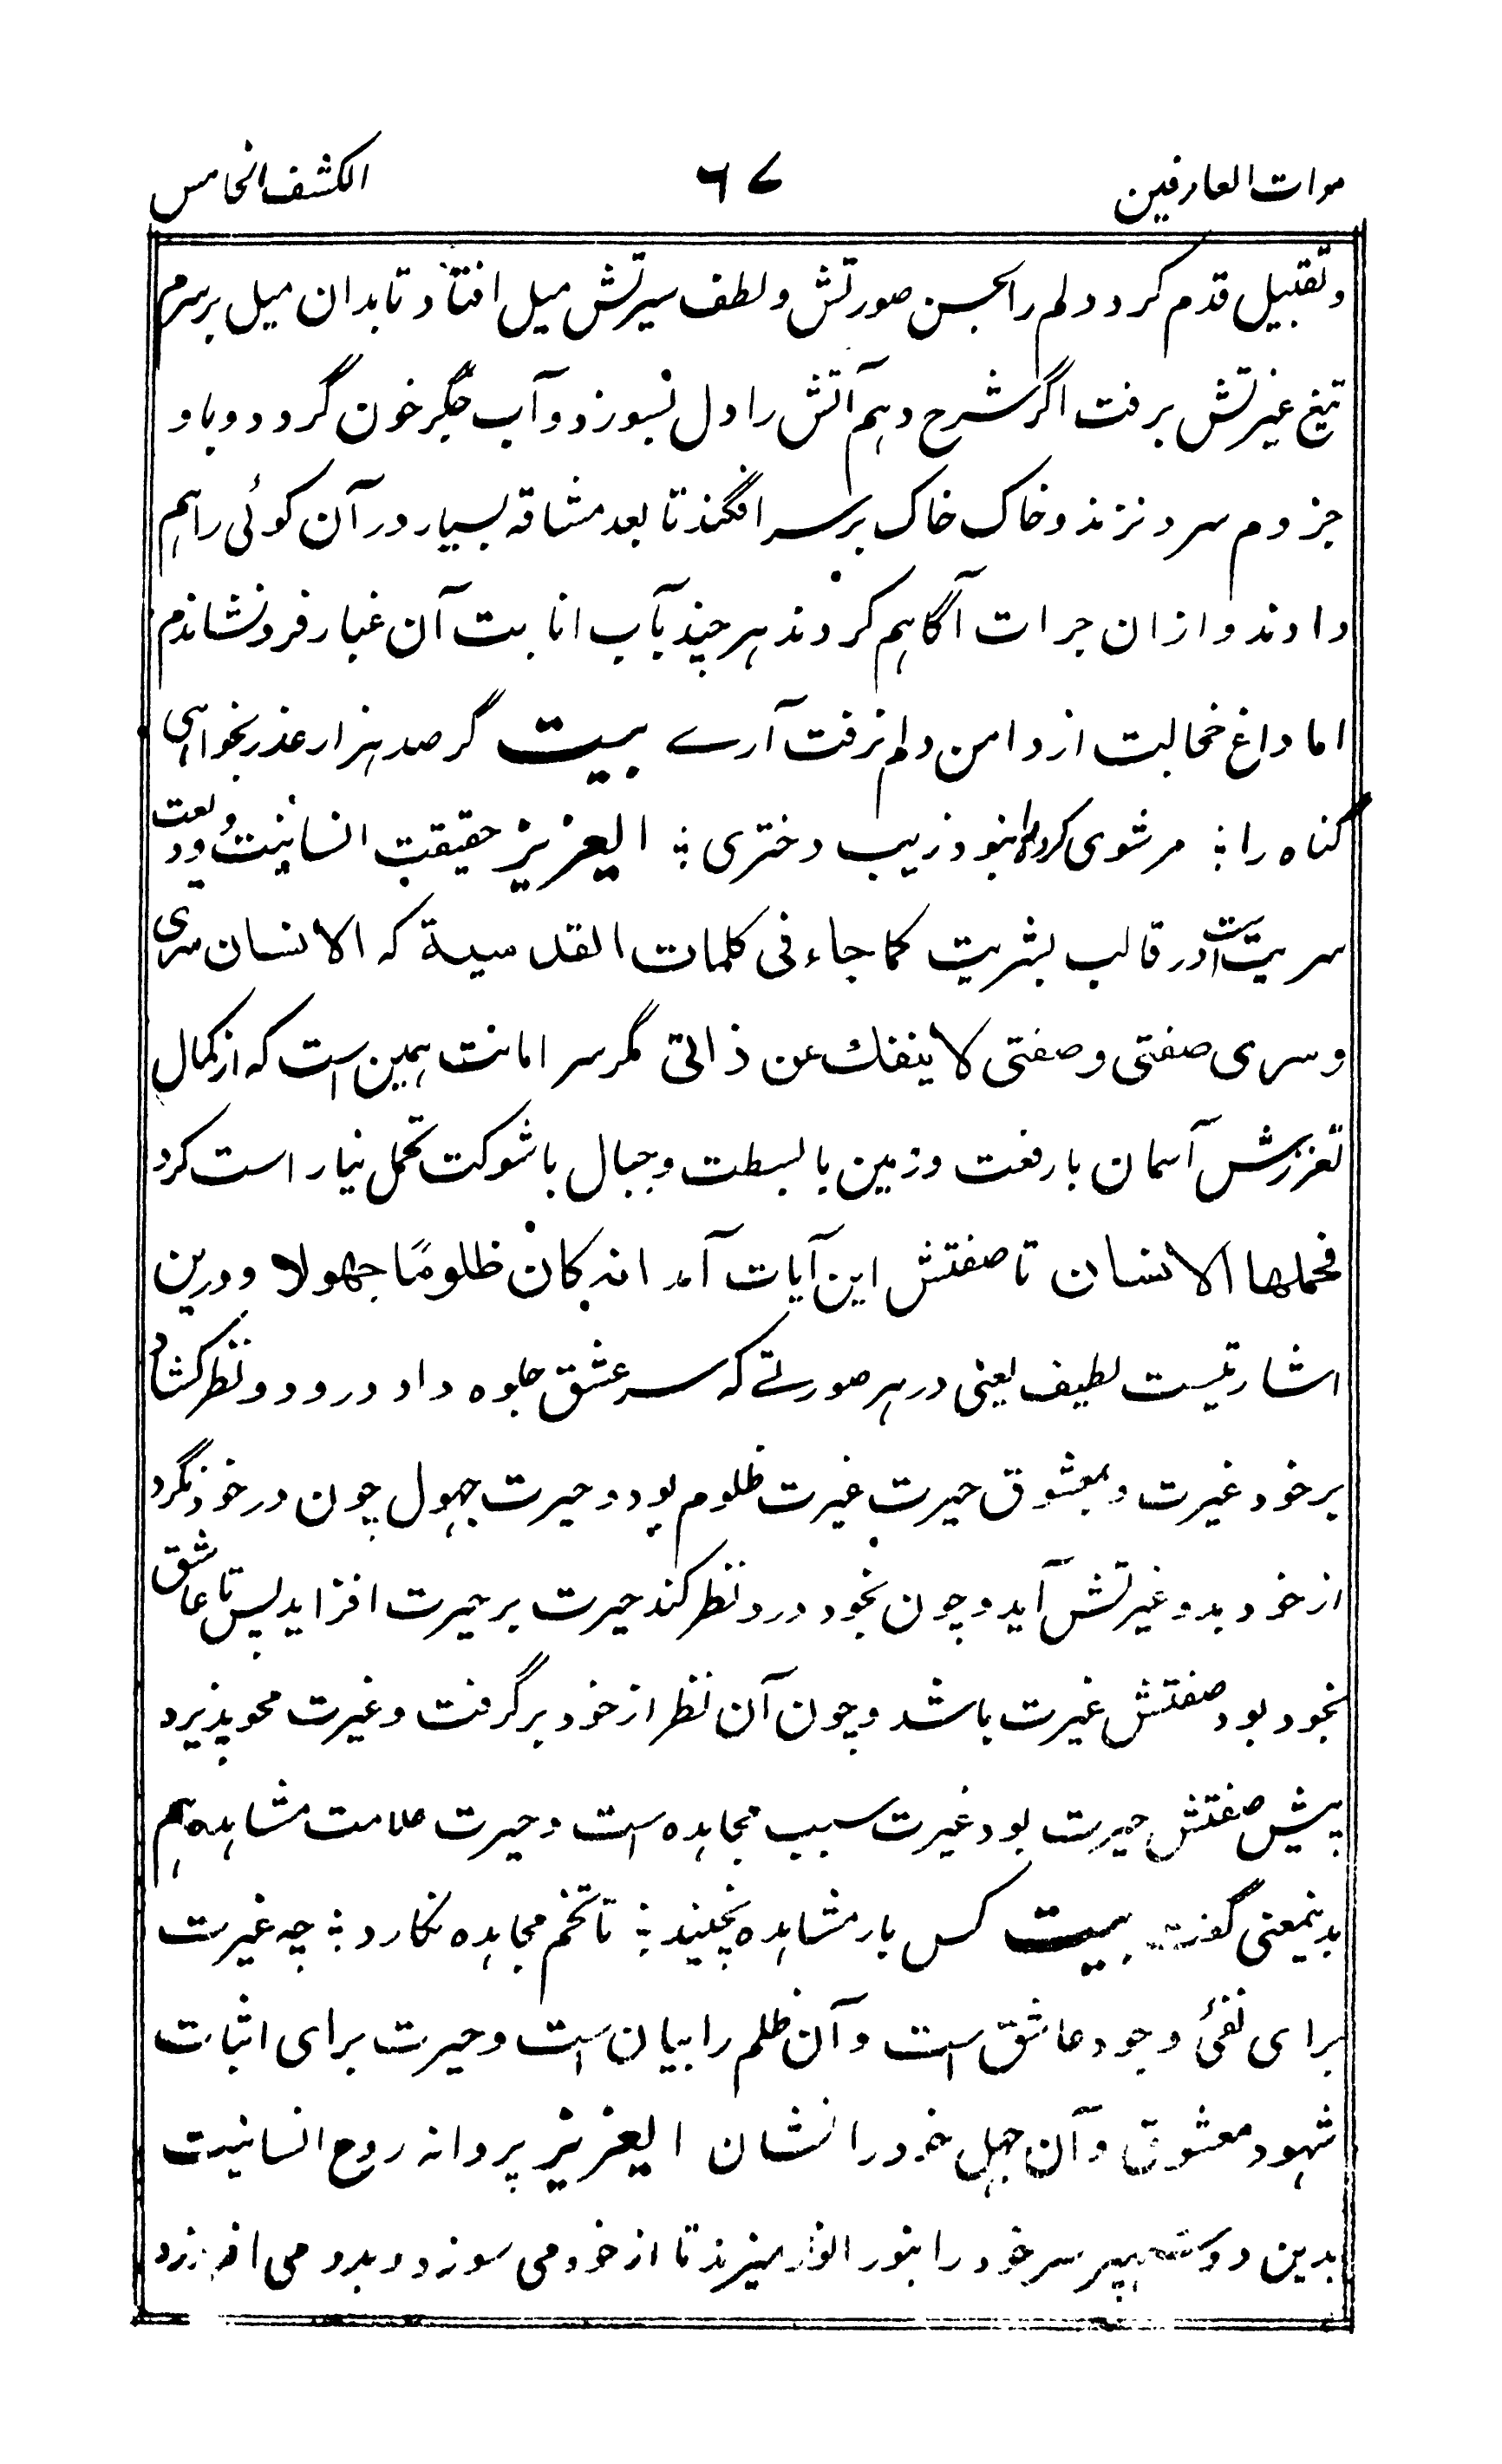 مرات العارفین ٦٧ الکشف الخامس
و تقبیل قدم کرد دلم را بحسن صورتش و لطف سیرتش میل افتاد تا بدان میل بر سرم
تیغ غیرتش برفت اگر شرح دہم آتش را دل بسوزد و آب جگر خون گردد و باد
جز دم سرد نزند و خاک خاک بر سر افگند تا بعد مشاقہ بسیار در آن کوئی راہم
دادند و ازان جرات آگاہم کردند ہر چند بآب انابت آن غبار فرونشاندم
اما داغ خجالت از دامن دلم نرفت آرے بیت گر صد ہزار عذر بخواہی
گناہ را ؞ مر شوی کردہ را نبود زیب دختری ؞ العزیز حقیقت انسانیت ودیعت
سریت است در قالب بشریت کما جاء فی کلمات القدسیة کہ الانسان سری
و سری صفتی و صفتی لا ینفك عن ذاتی مگر سر امانت ہمین است کہ از کمال
تعززش آسمان با رفعت و زمین با بسطت و جبال با شوکت تحمل نیارست کرد
فحملها الانسان تا صفتش این آیات آمد انه کان ظلومًا جهولا و درین
اشارتیست لطیف یعنی در ہر صورتے کہ سر عشق جلوہ داد درو دو نظر کشاد
بر خود غیرت و بمعشوق حیرت غیرت ظلوم بود و حیرت جہول چون در خود نگرد
از خود بدو غیرتش آید و چون بخود درو نظر کند حیرت بر حیرت افزاید پس تا عاشق
بخود بود صفتش غیرت باشد و چون آن نظر از خود برگرفت و غیرت محو پذیرد
پیش صفتش حیرت بود غیرت سبب مجاہدہ است و حیرت علامت مشاہدہ ہم
بدینمعنی گفت بیت کس بار مشاہدہ نچیند ؞ تا تخم مجاہدہ نکارد ؞ چہ غیرت
برای نفئ وجود عاشق است و آن ظلم را بیان است و حیرت برای اثبات
شہود معشوق و آن جہل خود را نشان العزیز پروانہ روح انسانیت
بدین دو شہپر سر خود را بنور میزند تا از خود می سوزد و بدو می افروزد